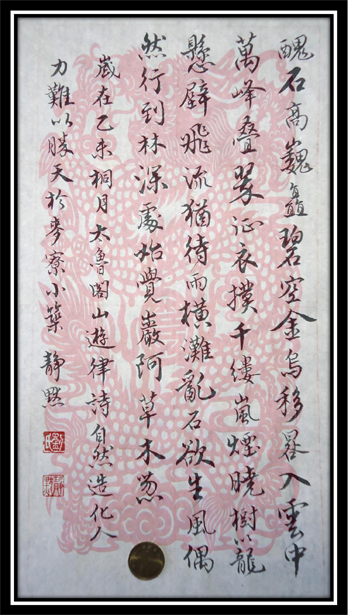 醜石高巍矗碧空金烏移晷入雲中
萬峰叠翠征衣撲千縷嵐煙曉樹籠
懸壁飛流猶待雨橫灘亂石欲生風偶
然行到林深處始覺巖阿草木葱
歲在乙未桐月太魯閣山遊律詩自然造化人
力難以勝天於麥寮小築 靜默